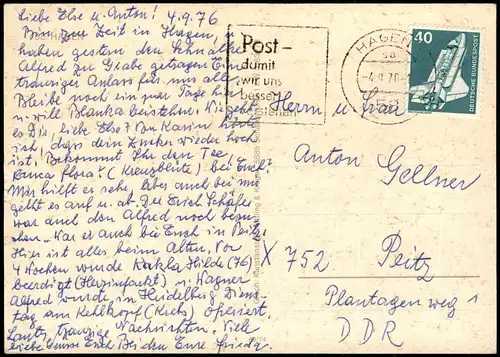 Liebe Else u. Anton! 4.9.76
Bin zur Zeit in Hagen, u.
haben gestern den
Alfred zu Grabe getragen. Ein
trauriger Anlass für uns alle.
Bleibe noch ein paar Tage hier
u. will Blanka beistehen. Wie geht
es Dir, liebe Else? Von Karin hörte
ich, dass dein Zucker wieder hoch
ist. Bekommt Ihr den Tee
flora? (Kreuzblüte) bei Euch.
Mir hilft es sehr. Aber auch bei mir
geht es auf u. ab. Zu Erich Schäfer
war auch den Alfred noch besu-
chen. War er auch bei Euch in Peitz.
Hier ist alles beim Alten. Vor
4 Wochen wurde Hilde (76)
beerdigt (Herzinfarkt) u. Wagner
Alfred wurde in Heidelberg Diens
tag am Kehlkopf (Krebs) operiert.
Lauter traurige Nachrichten. Viele
liebe Grüsse Euch Beiden Eure
Post -
damit
wir uns
besser
verstehen
HAGEN
40
DEUTSCHE BUNDESPOST
Herrn u. Frau
Anton Gellner
X 752 Peitz
Plantagenweg 1
DDR